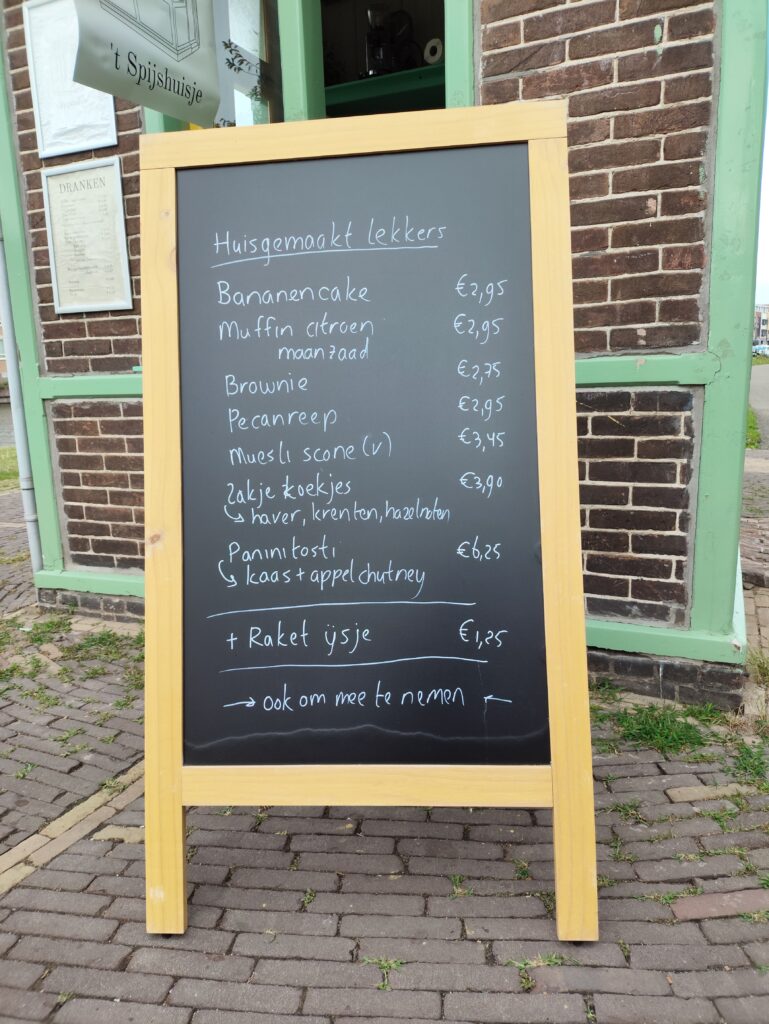 't Spijshuisje
DRANKEN
Huisgemaakt lekkers
Bananencake €2,95
Muffin citroen €2,95
maanzaad
Brownie €2,75
Pecanreep €2,95
Muesli scone (v) €3,45
Zakje koekjes €3,90
↳ haver, krenten, hazelnoten
Panini tosti €6,25
↳ kaas + appelchutney
+ Raket ijsje €1,25
→ ook om mee te nemen ←